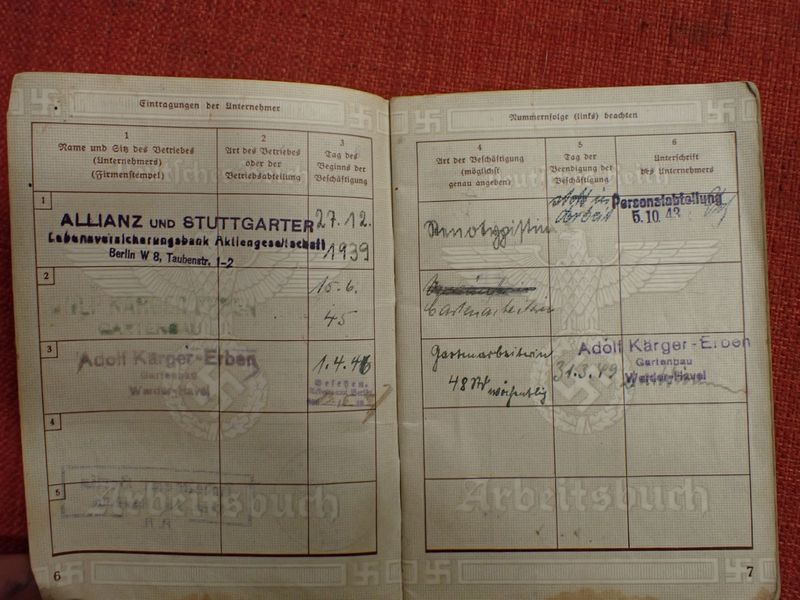 Eintragungen der Unternehmer
1
Name und Sitz des Betriebes
(Unternehmers)
(Firmenstempel)
2
Art des Betriebes
oder der
Betriebsabteilung
3
Tag des
Beginns der
Beschäftigung
1
ALLIANZ UND STUTTGARTER
Lebensversicherungsbank Aktiengesellschaft
Berlin W 8, Taubenstr. 1-2
27.12.
1939
2
GARTENBAU
15.6.
45
3
Adolf Kärger-Erben
Gartenbau
Werder-Havel
1.4.46
Gesehen.
4
5
Arbeitsbuch
6
Nummernfolge (links) beachten
4
Art der Beschäftigung
(möglichst
genau angeben)
5
Tag der
Beendigung der
Beschäftigung
6
Unterschrift
des Unternehmers
Stenotypistin
Arbeit
Personalabteilung
5.10.43
Gartenarbeiterin
Gartenarbeiterin
48 Std wöchentlich
31.3.49
Adolf Kärger-Erben
Gartenbau
Werder-Havel
Arbeitsbuch
7